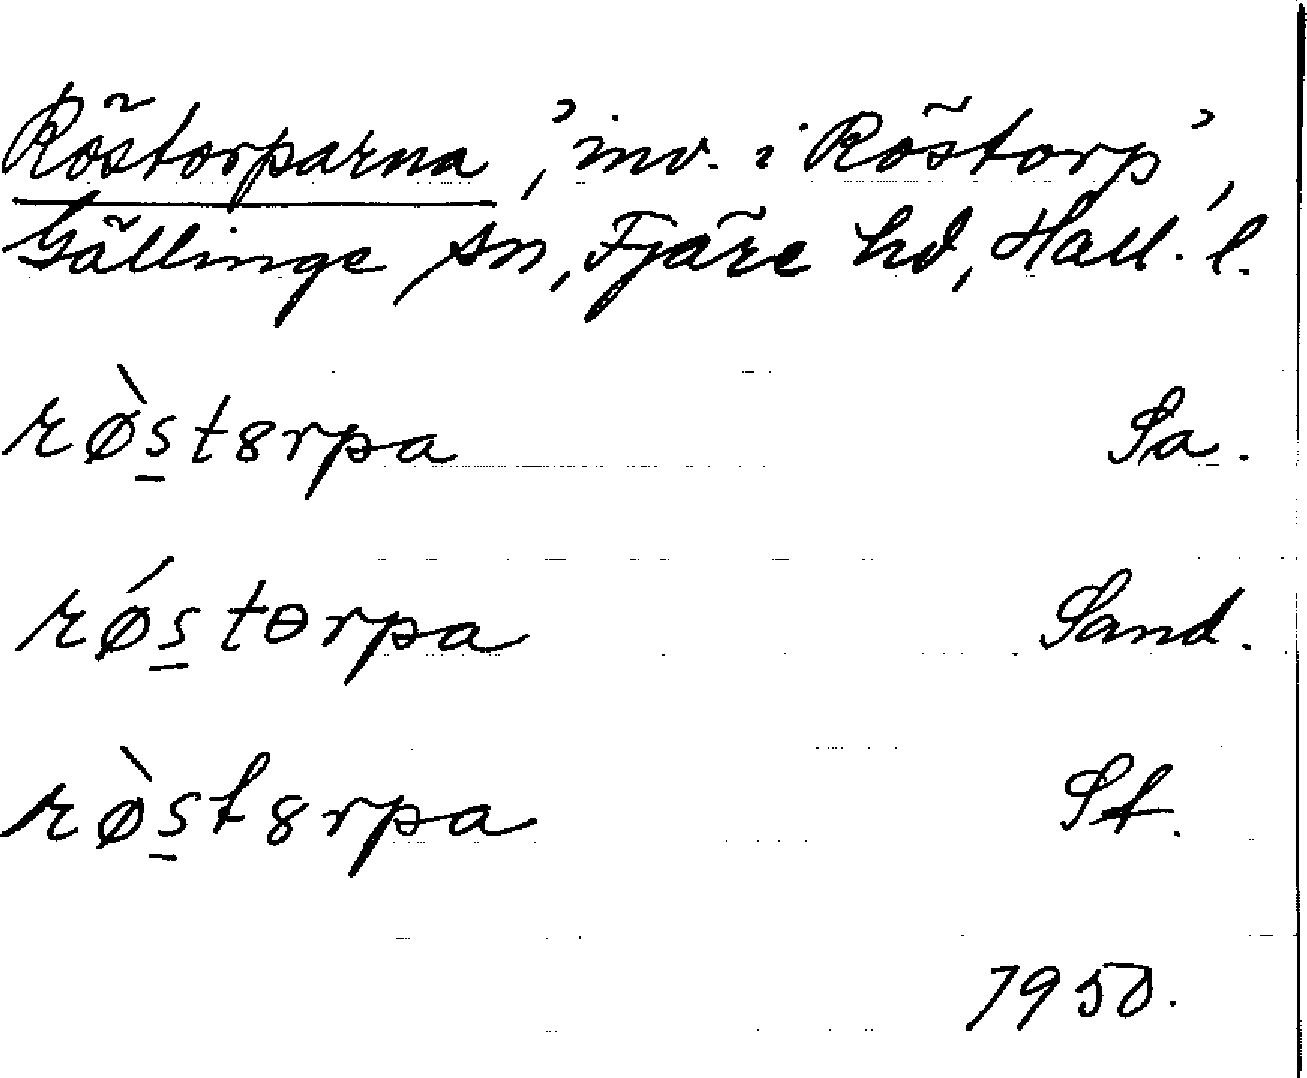 Röstorparna, 'inv. i Röstorp',
Gällinge sn, Fjäre hd, Hall. l.
røs̲̀t8rpa Sa.
røś̲tɵrpa Sand.
røs̲̀t8rpa St.
1950.